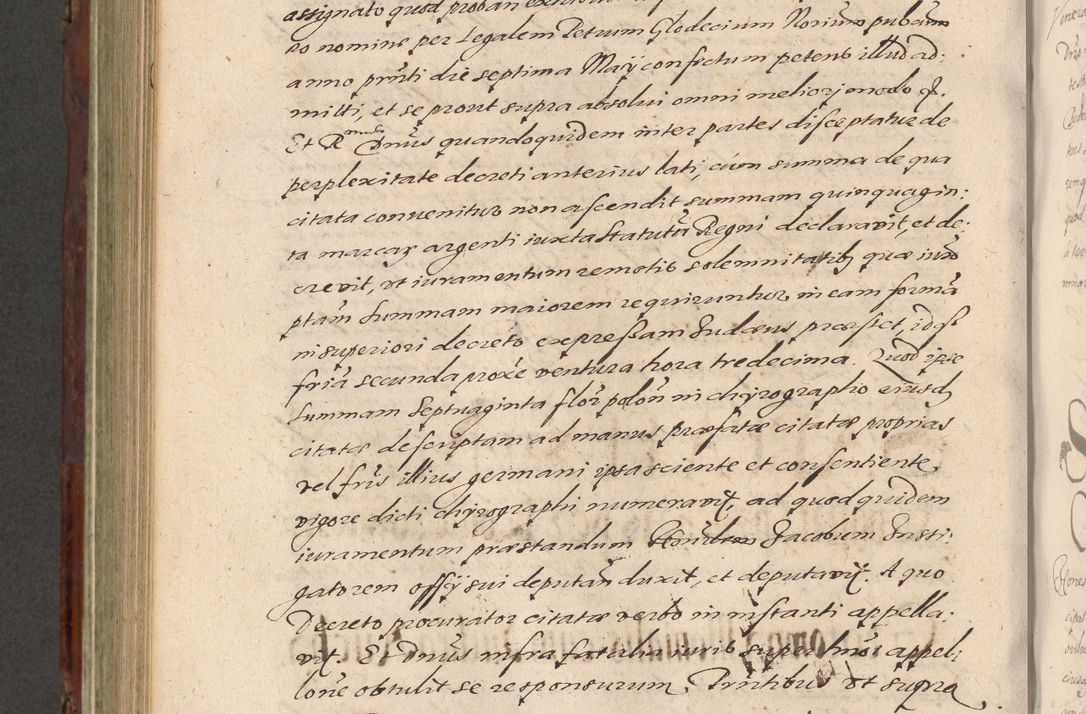 assignato quod proban
ro nomine per Legalem Petrum Glodecium Norium pubcum
anno pnti die septima Maÿ confectum petens illud ad:
mitti, et se prout supra absolui omni meliorj modo &.
Et R Dnus quandoquidem inter partes disceptatur de
perplexitate decreti anterius lati, cum summa de qua
citata conuenitur non ascendit summam quinquagin:
ta marcar argenti iuxta statuta Regni declarauit, et de:
creuit, vt iuramentum remotis solemnitatibz quæ
ptam summam maiorem requiruntur, in eam forma
in superiori decreto expressam Judæus præstet, id
fria secunda proxe ventura hora tredecima. Quod ipse
summam septuaginta flor polon in chÿrographo eiusd
citatæ descriptam ad manus præfatæ citatæ proprias
vel fris illius germani ipsa sciente et consentiente
vigore dicti chÿrographi numerauit, ad quod quidem
iuramentum præstandum Jacobum Insti:
gatorem offÿ sui deputan duxit, et deputauit. A quo
Decreto procurator citatæ verbo in instanti appella:
uit. Et Dnus infra fatalia iuris super hmoi appel:
lone obtulit se responsurum. Pnntibus vt supra